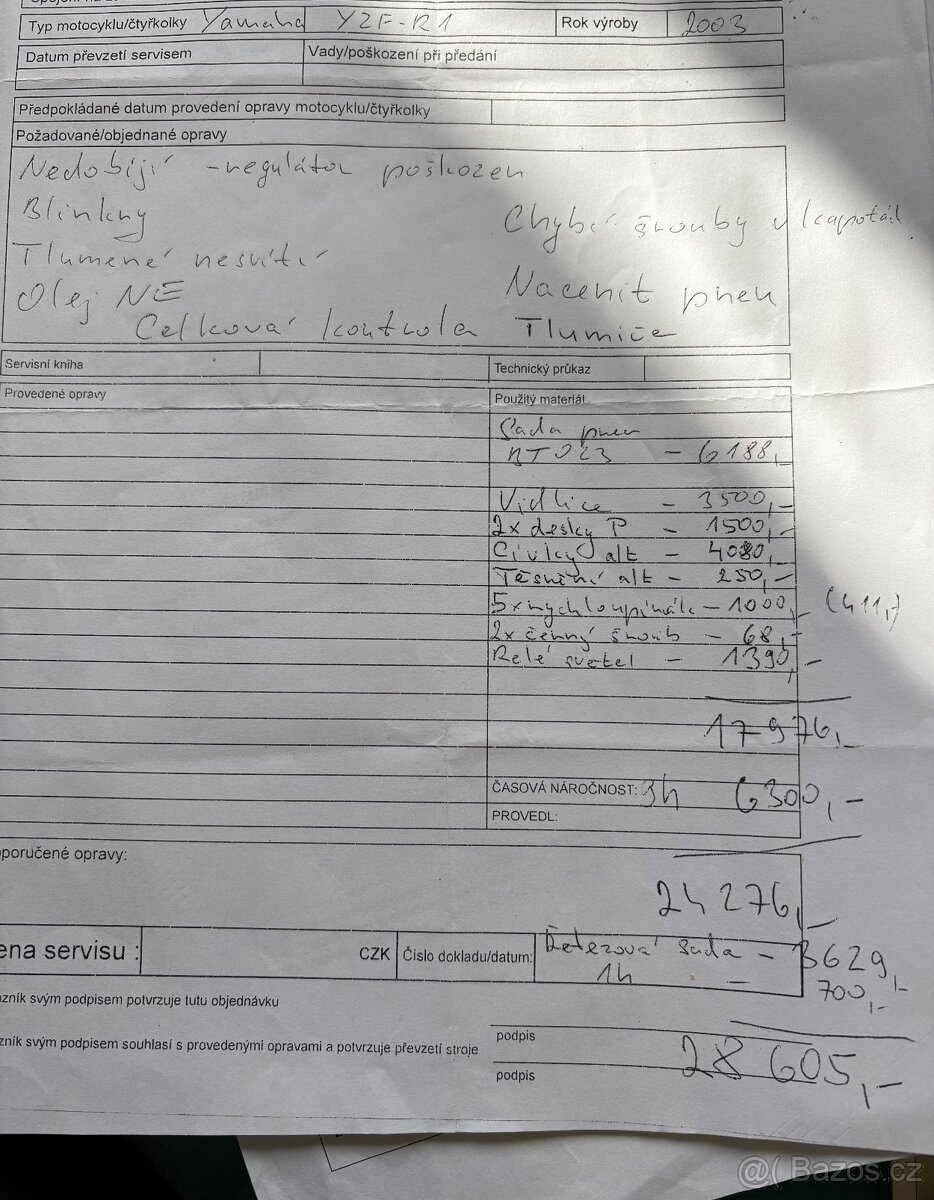 Typ motocyklu/čtyřkolky Yamaha YZF-R1 Rok výroby 2003
Datum převzetí servisem Vady/poškození při předání
Předpokládané datum provedení opravy motocyklu/čtyřkolky
Požadované/objednané opravy
Nedobíjí - regulátor poškozen
Blinkry Chybí šrouby v kapotáži
Tlumené nesvítí
Olej NE Nacenit pneu
Celková kontrola Tlumiče
Servisní kniha Technický průkaz
Provedené opravy Použitý materiál
Sada pneu
BT023 - 6188,-
Vidlice - 3500,-
2x desky P - 1500,-
Cívky alt - 4080,-
Těsnění alt - 250,-
5x rychloupínák - 1000,- (411,-)
2x černý šroub - 68,-
Relé světel - 1390,-
17976,-
ČASOVÁ NÁROČNOST: 9h 6300,-
PROVEDL:
poručené opravy:
24 276,-
ena servisu : CZK Číslo dokladu/datum: Řetězová sada - 3629,-
1h - 700,-
azník svým podpisem potvrzuje tuto objednávku
podpis
zník svým podpisem souhlasí s provedenými opravami a potvrzuje převzetí stroje
28 605,-
podpis
@( Bazos.cz